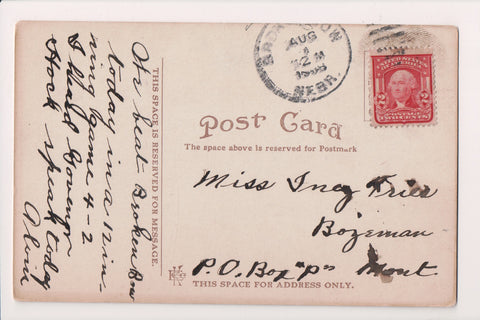 We beat Broken Bow
today in a 12 in-
ning game 4-2
I heard Govenor
Hock speak today
Alvin
THIS SPACE IS RESERVED FOR MESSAGE.
BROKEN BOW
AUG
12 M
NEBR.
UNITED STATES
OF AMERICA
2 2
POSTAGE
TWO CENTS
Post Card
The space above is reserved for Postmark
Miss Inez Fries
Bozeman
P.O. Box "P" Mont.
THIS SPACE FOR ADDRESS ONLY.